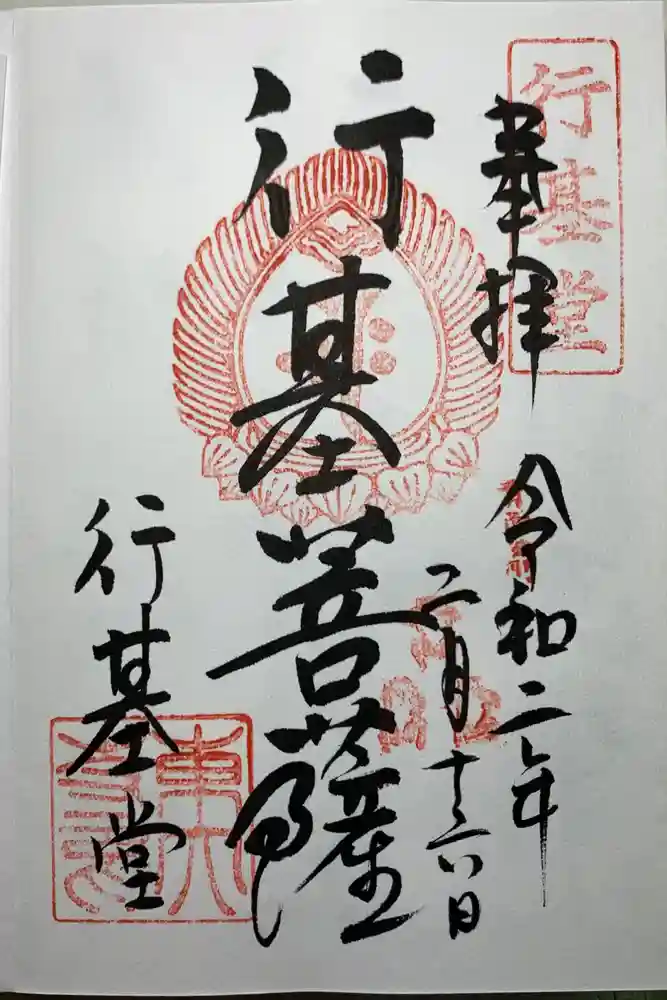 行基堂
奉拝
令和二年
二月十六日
行基菩薩
行基堂
東大